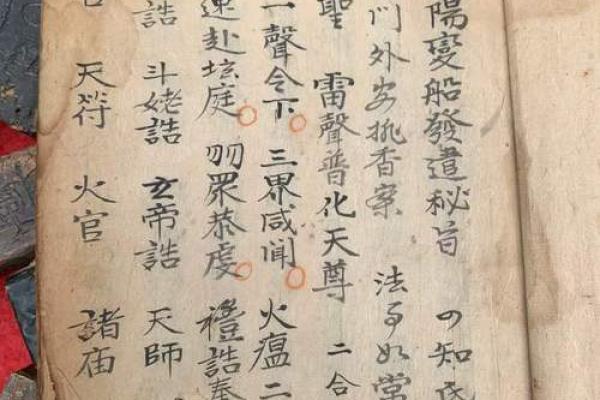 陽變船發遣秘旨 㕥知氏
門外安排香案 法事如常
聖 雷聲普化天尊 二合
一聲令下 三界咸聞 火瘟二
速赴坛庭 叨眾恭虔 禮誥奉
誥 斗姥誥 玄帝誥 天師
天符 火官 諸庙